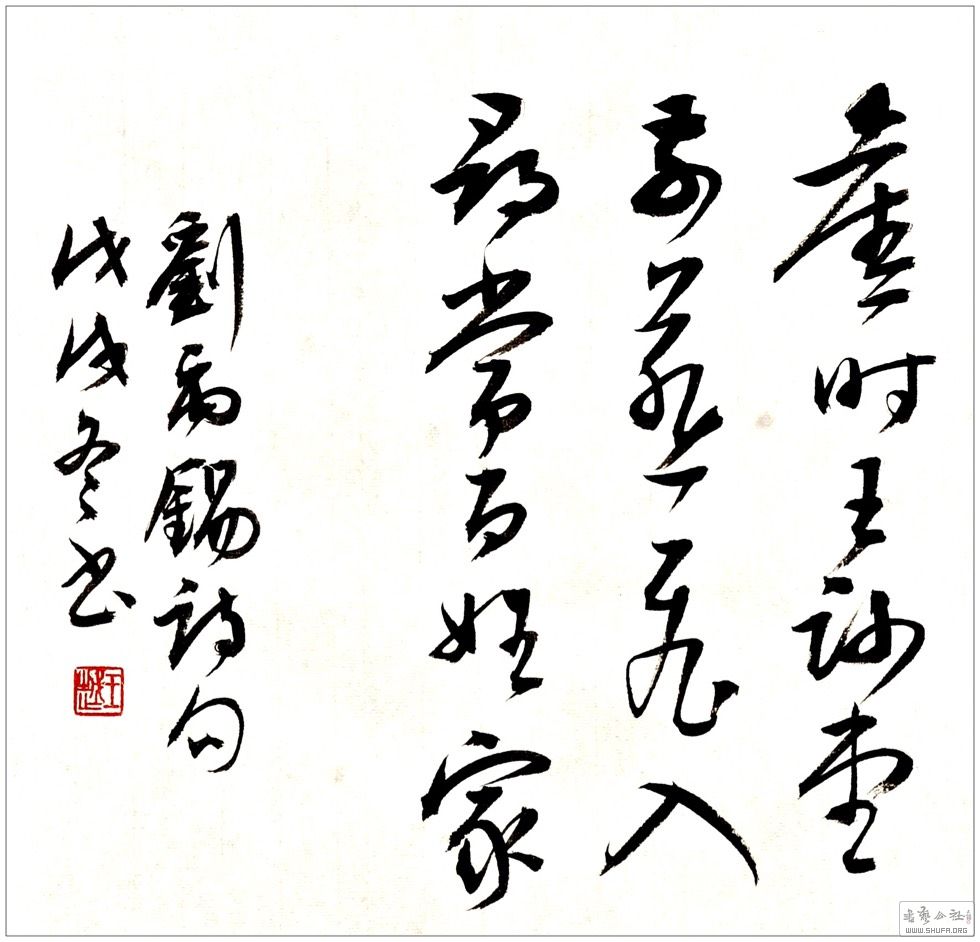 舊时王谢堂
前燕飛入
尋常百姓家
劉禹錫诗句
戊戌冬书
書藝公社
WWW.SHUFA.ORG